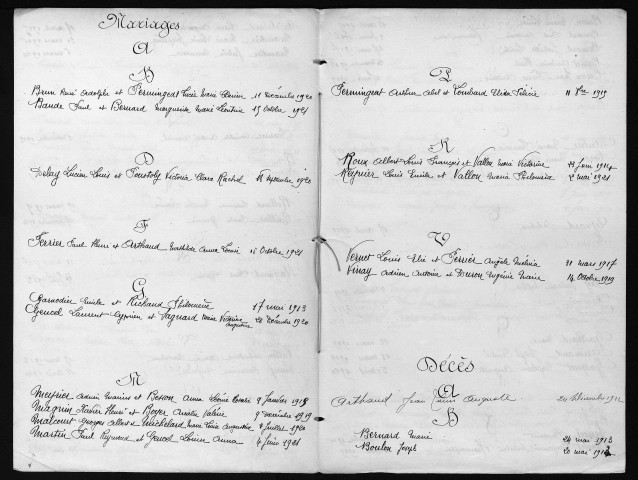 Mariages
A
B
Brun René Adolphe et Fermingeat Lucie Marie 11 Décembre 1920
Baude Paul et Bernard Marguerite Marie 15 Octobre 1921
D
Delay Lucien Louis et Victoria Clara Rachel Septembre 1920
F
Ferrier Paul Henri et Arthaud Mathilde Anna Louise 15 Octobre 1921
G
Garnodier Emile et Richaud Philomène 17 mai 1913
Gencel Laurent Cyprien et Vagnard Marie Victorine Augustine 22 Décembre 1920
M
Meysier Marius et Besson Anna 9 Janvier 1918
Magnin Xavier Henri et Boyer Amélie Valérie 9 Décembre 1919
Malcourt Georges Albert et Michelard Marie Louise Augustine 8 Juillet 1920
Martin Paul Raymond et Gencel Louise Anna 4 Juin 1921
P
Fermingeat Arthur Abel et Lombard Elisa Félicie 11 1919
R
Roux Albert Louis François et Vallon Marie Victorine 23 Juin 1914
Reynier Louis Emile et Vallon Maria Philomène 2 mai 1921
V
Vernet Louis Elie et Ferrier Angèle 31 mars 1917
Vinay Adrien Antoine et Eugénie Marie 14 Octobre 1919
Décès
A
Arthaud Jean Louis Auguste 24 1912
B
Bernard Marie 24 mai 1913
Boulon Joseph 20 mai